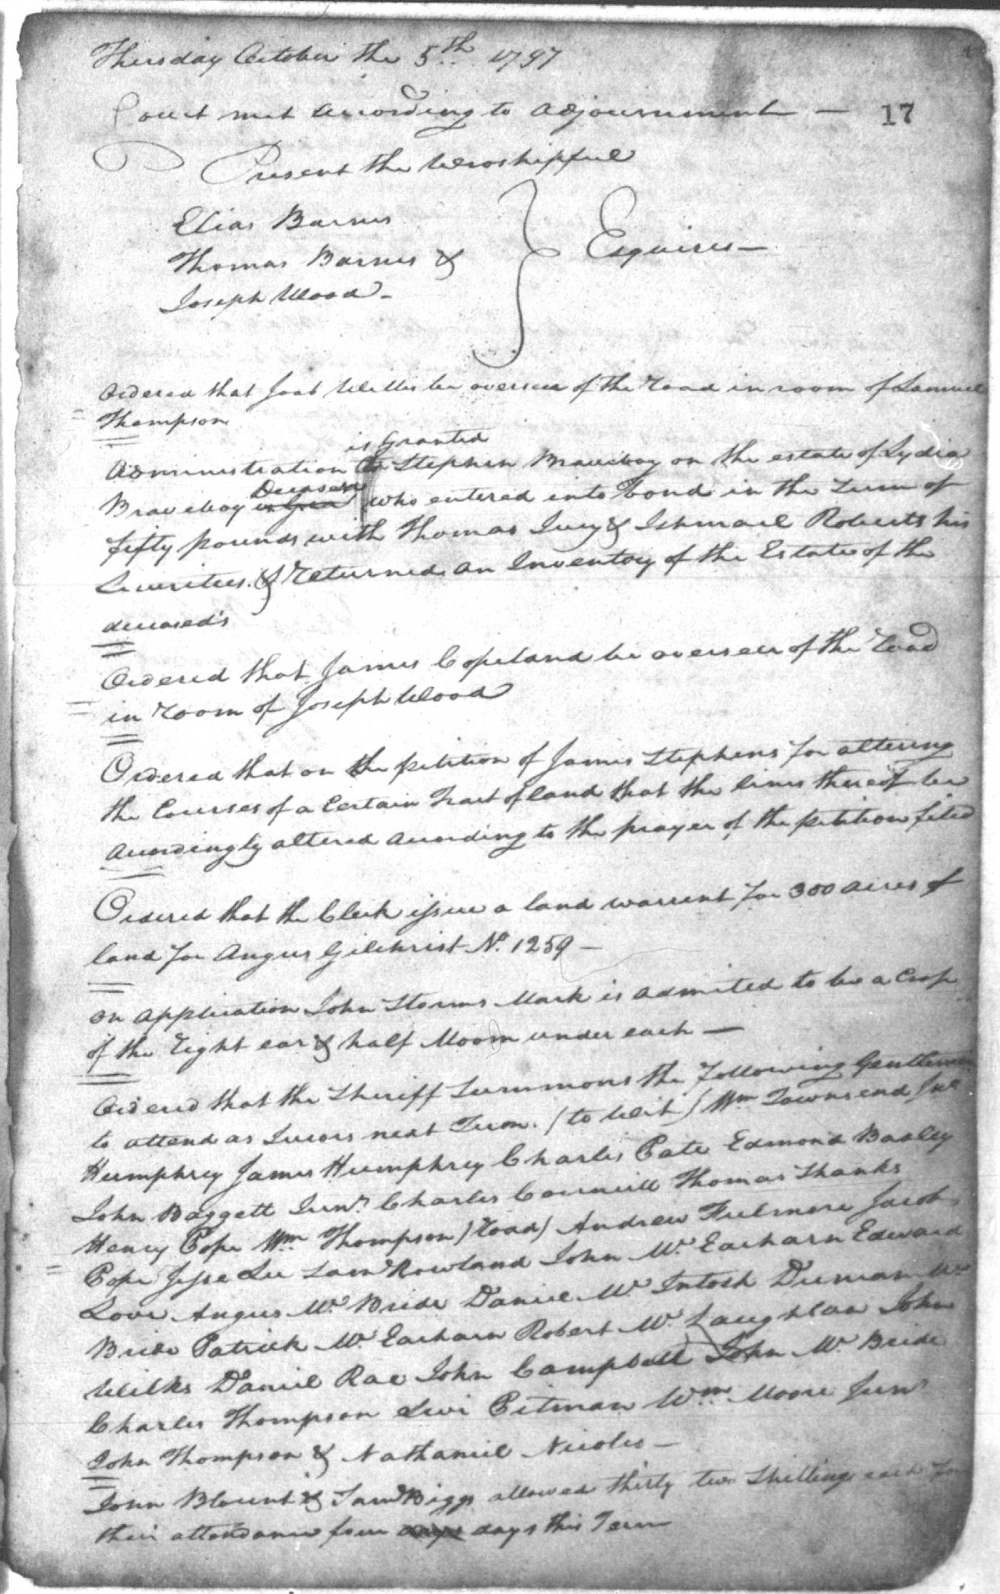 Thursday October the 5th 1797
Court met according to adjournment —
17
Present the Worshipful
Elias Barnes
Thomas Barnes &
Joseph Wood -
Esquires —
Ordered that Joab Willis be overseer of the road in room of Samuel
Thompson
is Granted
Administration to Stephen Braveboy on the estate of Lydia
Deceased
Braveboy who entered into bond in the sum of
fifty pounds with Thomas Ivey & Ishmael Roberts his
Securities & returned an Inventory of the Estate of the
deceased's
Ordered that James Copeland be overseer of the road
in room of Joseph Wood
Ordered that on the petition of James Stephens for altering
the Courses of a Certain Tract of land that the lines thereof be
accordingly altered according to the prayer of the petition filed
Ordered that the Clerk issue a land warrent for 300 acres of
land for Angus Gilchrist No. 1259 —
on application John Storms Mark is admited to be a Crop
of the right ear & half Moon under each —
Ordered that the Sheriff Summons the following Gentlemen
to attend as Jurors next Term. (to wit) Wm Townsend Junr
Humphrey James Humphrey Charles Pate Edmond Baxley
John Baggett Junr. Charles Thomas Shanks
Henry Pope Wm Thompson (road) Andrew Fulmore Jacob
Pope Jesse Lee Saml Rowland John Mc. Eacharn Edward
Love Angus Mc. Bride Daniel Mc Intosh Duncan Mc
Bride Patrick Mc. Eacharn Robert Mc. Laughlan John
Wilks Daniel Rae John Campbell John Mc Bride
Charles Thompson Levi Pitman Wm Moore Junr
John Thompson & Nathaniel Nicoles —
John Blount & Saml Biggs allowed thirty two Shillings each for
their attendance four days days this Term